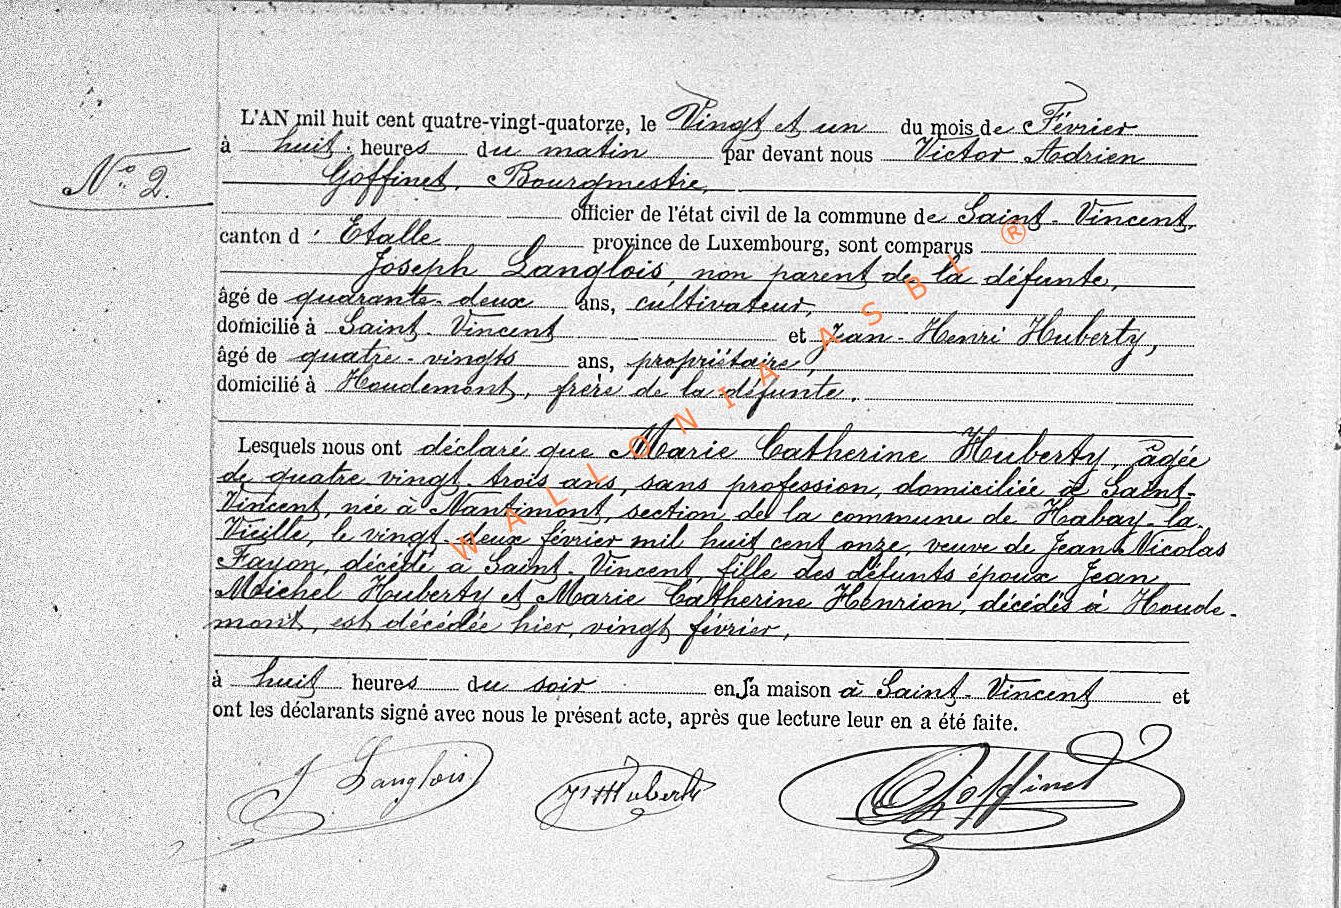 L'AN mil huit cent quatre-vingt-quatorze, le Vingt et un du mois de Février
N° 2.
à huit heures du matin par devant nous Victor Adrien
Goffinet, Bourgmestre,
officier de l'état civil de la commune de Saint-Vincent,
canton d'Etalle province de Luxembourg, sont comparus
Joseph Langlois, non parent de la défunte,
âgé de quarante-deux ans, cultivateur,
domicilié à Saint-Vincent et Jean-Henri Huberty,
âgé de quatre-vingts ans, propriétaire,
domicilié à Houdemont, frère de la défunte.
Lesquels nous ont déclaré que Marie Catherine Huberty, âgée
de quatre-vingt-trois ans, sans profession, domiciliée à Saint-
Vincent, née à Nantimont, section de la commune de Habay-la-
Vieille, le vingt-deux février mil huit cent onze, veuve de Jean Nicolas
Fayon, décédé à Saint-Vincent, fille des défunts époux Jean
Michel Huberty et Marie Catherine Henrion, décédés à Houde-
mont, est décédée hier, vingt février,
à huit heures du soir en sa maison à Saint-Vincent et
ont les déclarants signé avec nous le présent acte, après que lecture leur en a été faite.
J Langlois JH Huberty Goffinet
WALLONIA ASBL ®